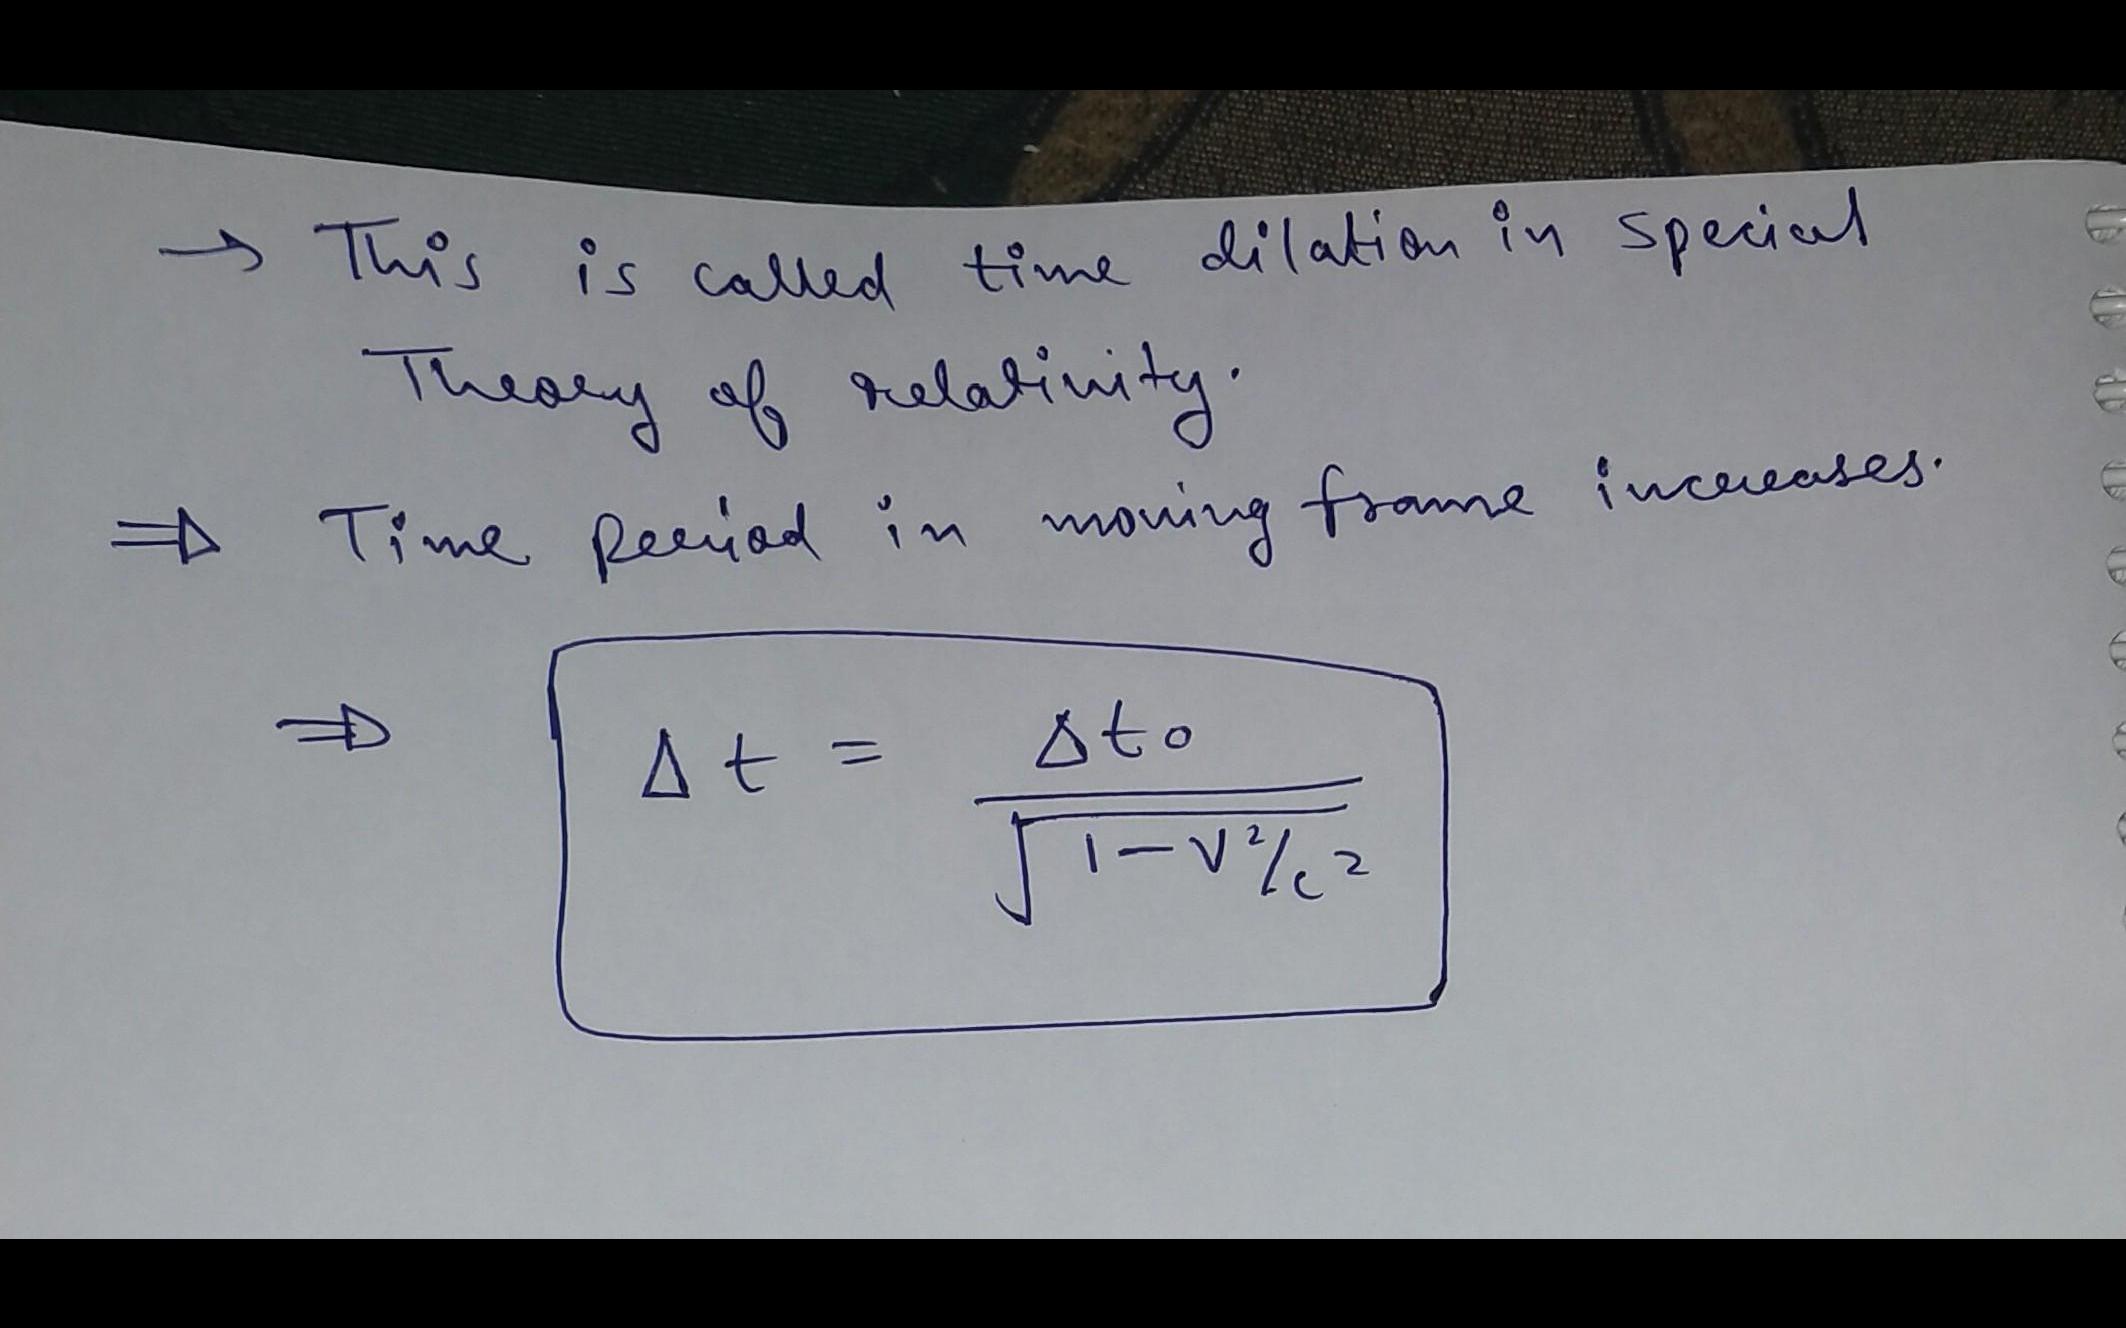 → This is called time dilation in special
Theory of relativity.
⇒ Time period in moving frame increases.
⇒ Δt = Δt₀ / √(1 - v²/c²)